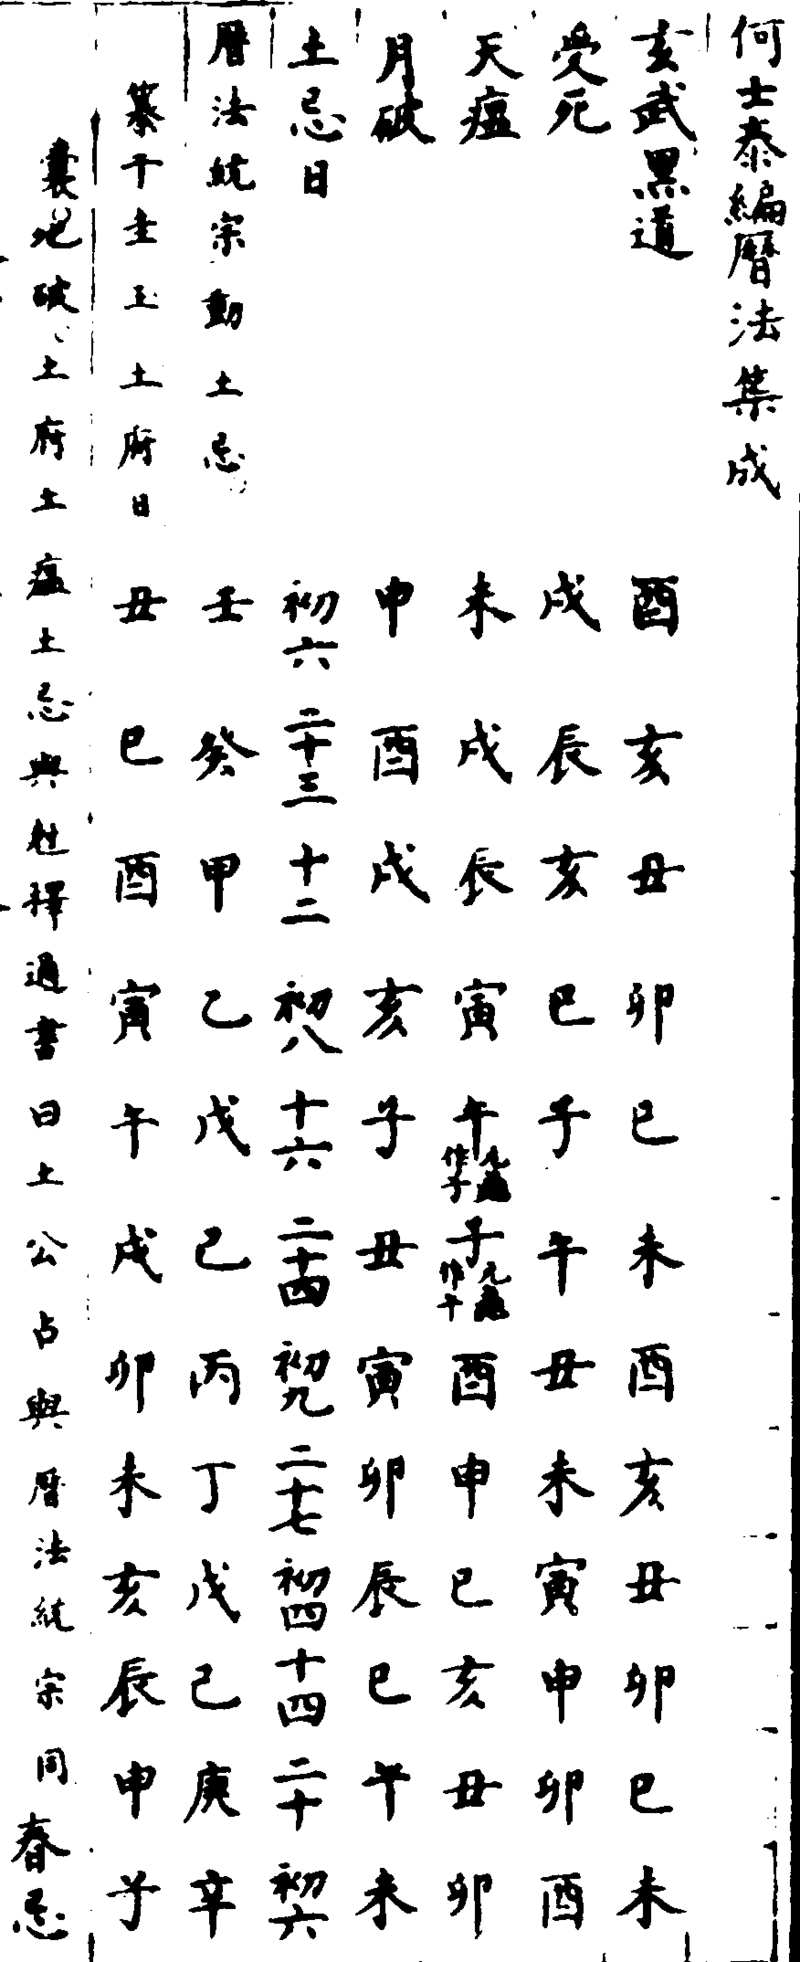 何士泰編曆法集成
玄武黑道 酉 亥 丑 卯 巳 未 酉 亥 丑 卯 巳 未
受死 戌 辰 亥 巳 子 午 丑 未 寅 申 卯 酉
天瘟 未 戌 辰 寅 午元龜作子 子元龜作午 酉 申 巳 亥 丑 卯
月破 申 酉 戌 亥 子 丑 寅 卯 辰 巳 午 未
土忌日 初六 二十三 十二 初八 十六 二十四 初九 二十七 初四 十四 二十 初六
曆法統宗動土忌 壬 癸 甲 乙 戊 己 丙 丁 戊 己 庚 辛
纂干圭玉土府日 丑 巳 酉 寅 午 戌 卯 未 亥 辰 申 子
囊地破土府土瘟土忌與牲擇通書曰土公占與曆法統宗同春忌